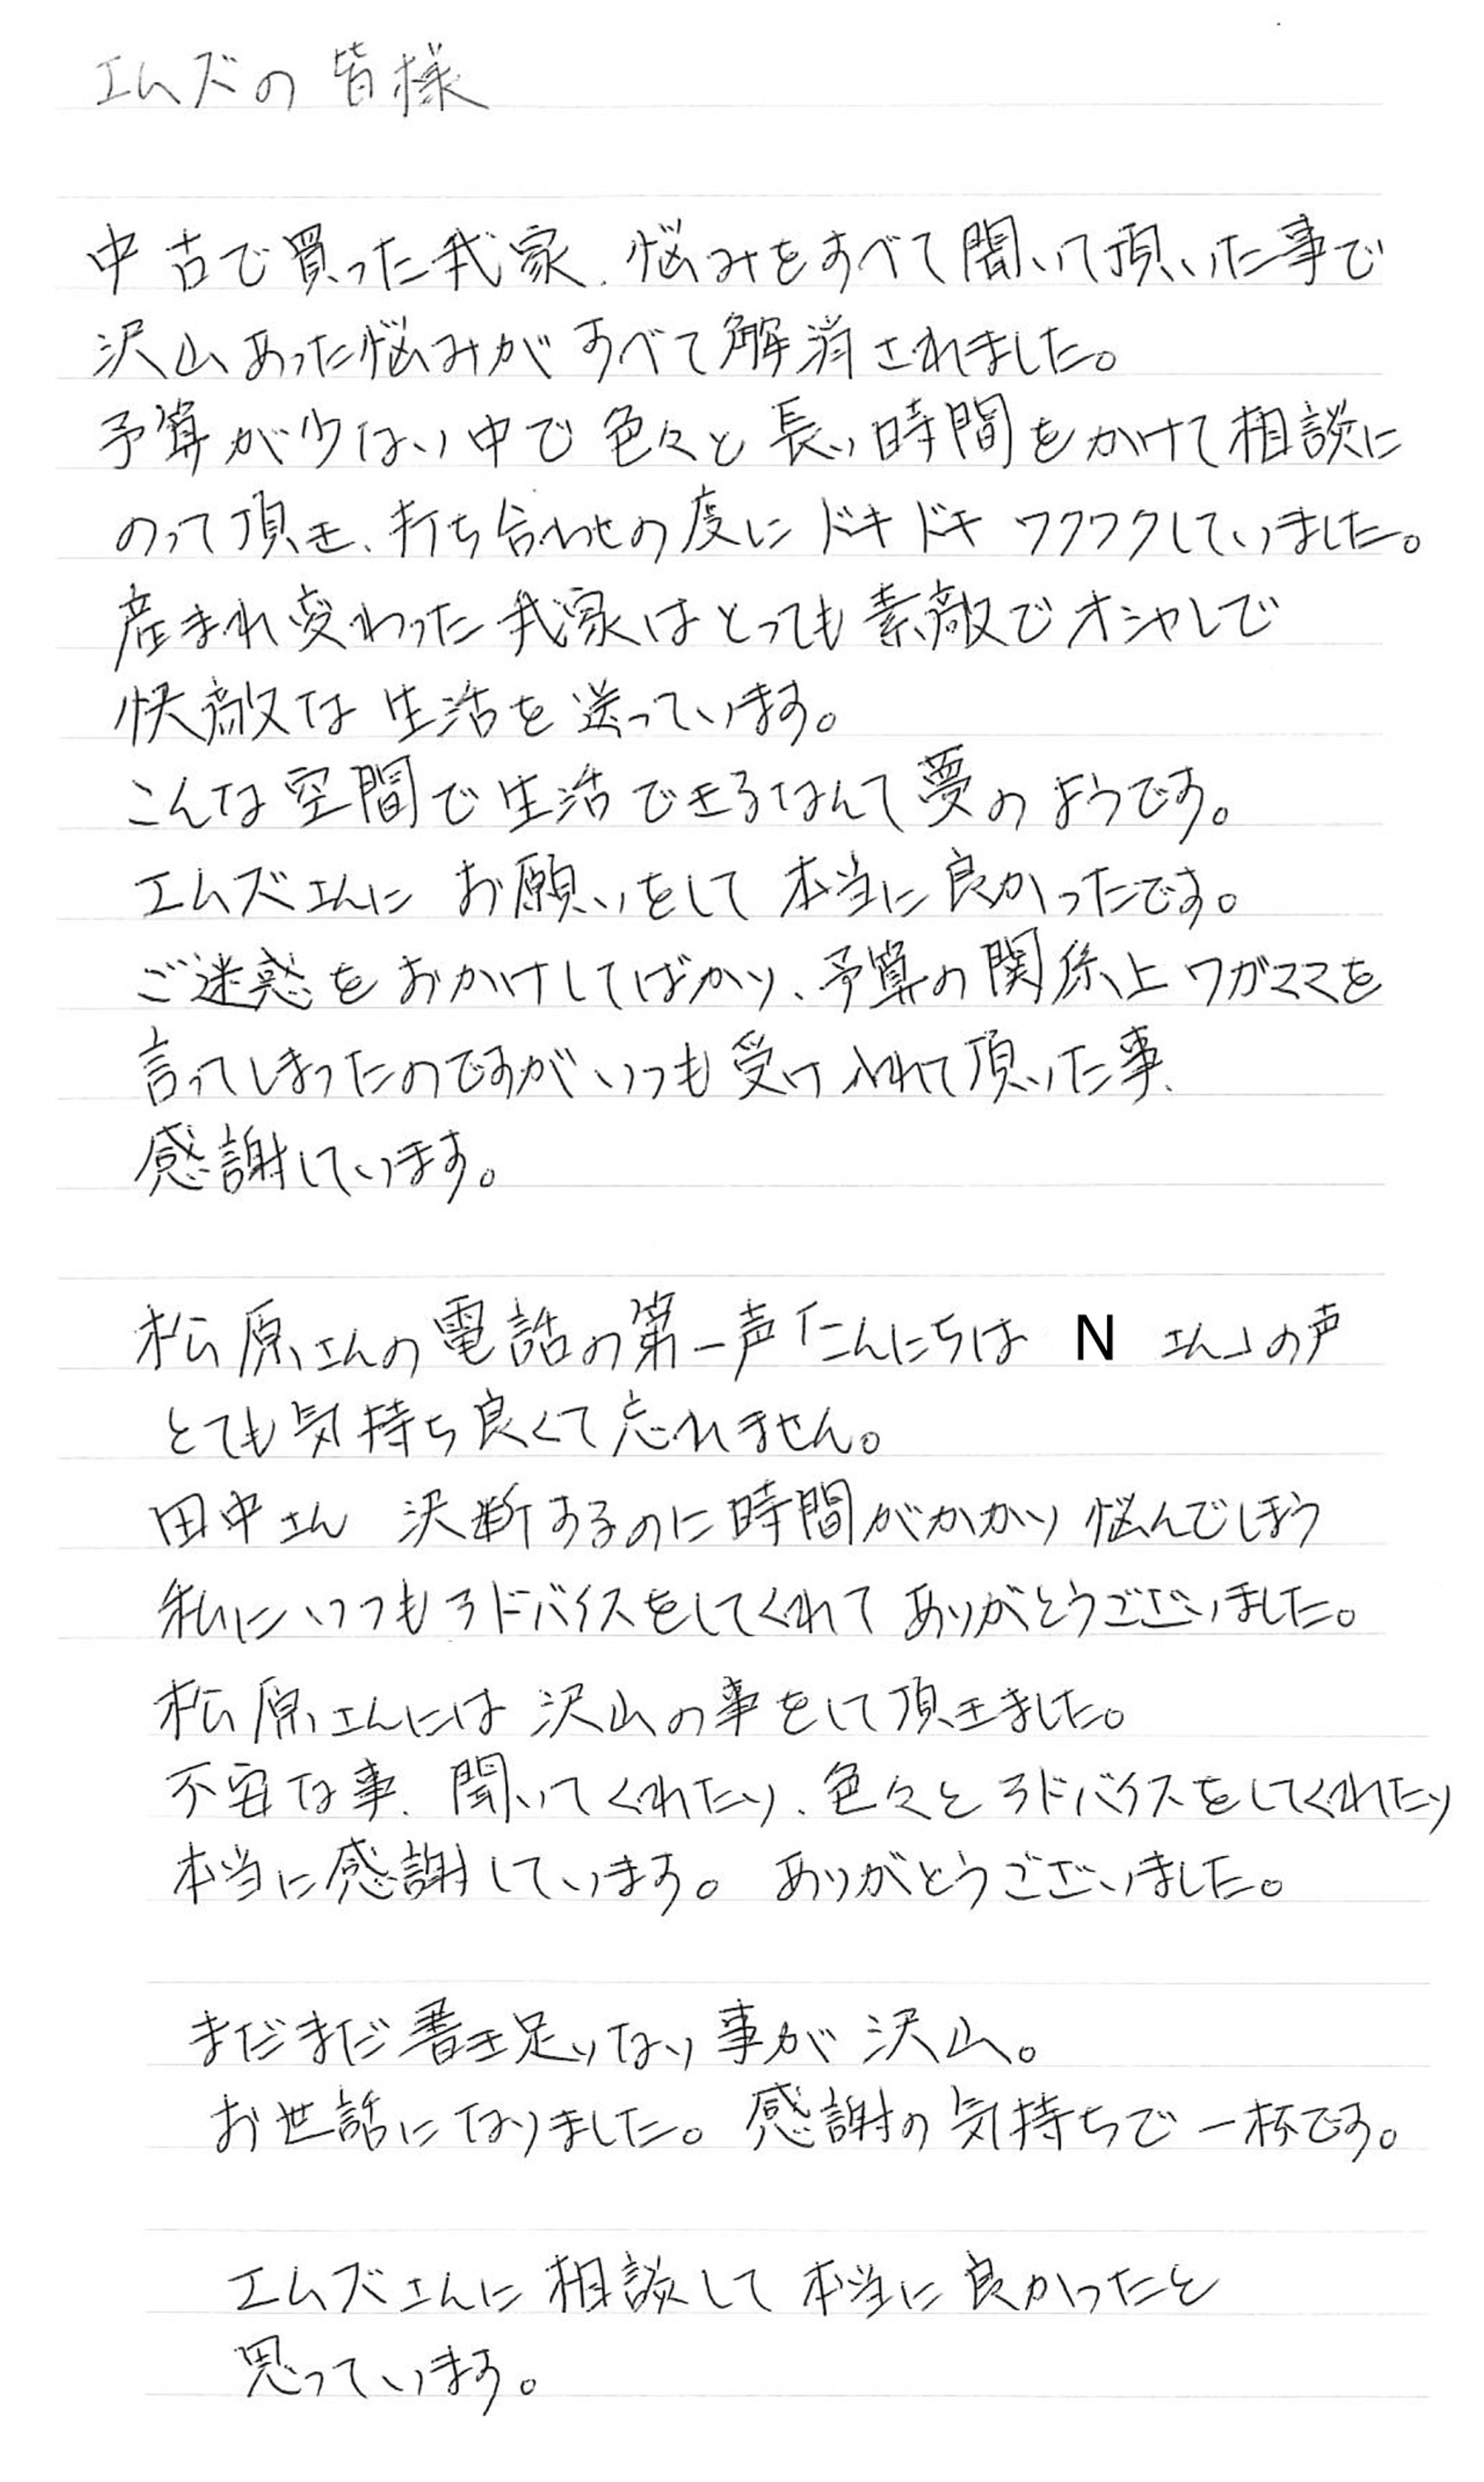 エムズの皆様
中古で買った我家、悩みをすべて聞いて頂いた事で
沢山あった悩みがすべて解消されました。
予算が少ない中で色々と長い時間をかけて相談に
のって頂き、打ち合わせの度にドキドキワクワクしていました。
産まれ変わった我家はとっても素敵でオシャレで
快敵な生活を送っています。
こんな空間で生活できるなんて夢のようです。
エムズさんにお願いをして本当に良かったです。
ご迷惑をおかけしてばかり、予算の関係上ワガママを
言ってしまったのですがいつも受け入れて頂いた事、
感謝しています。
松原さんの電話の第一声「こんにちは N さん」の声
とても気持ち良くて忘れません。
田中さん 決断するのに時間がかかり悩んでしまう
私にいつもアドバイスをしてくれてありがとうございました。
松原さんには沢山の事をして頂きました。
不安な事、聞いてくれたり、色々とアドバイスをしてくれたり
本当に感謝しています。ありがとうございました。
まだまだ書き足りない事が沢山。
お世話になりました。感謝の気持ちで一杯です。
エムズさんに相談して本当に良かったと
思っています。